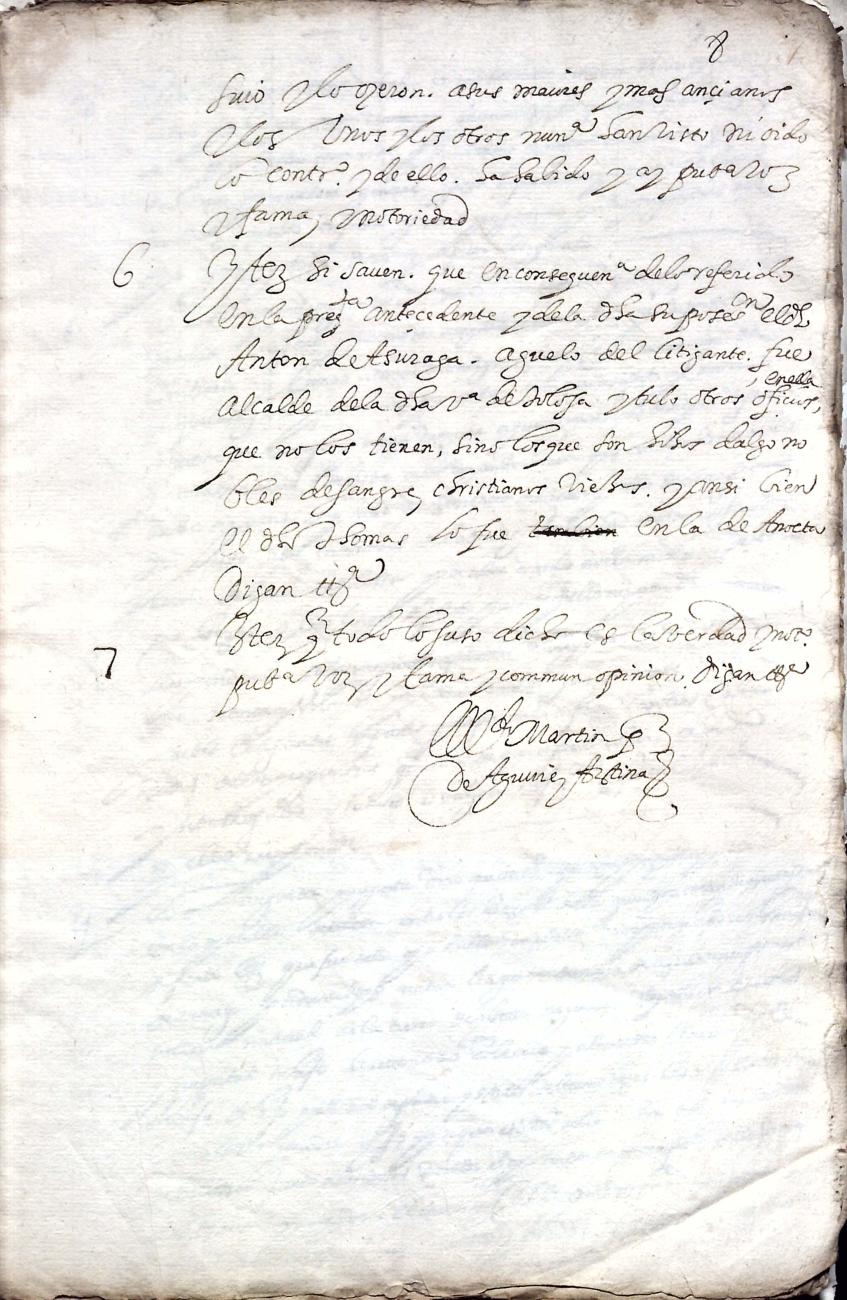 8
suio y lo oyeron. a sus maiores y mas ançianos
y los Unos y los otros nunª han Visto ni oido
lo contrº. y de ello. ha habido y ay pubca Voz
y fama, y notoriedad
6 Yten si saven. que en consequenª de lo referido
en la pregta antecedente y de la dha su posesn el dho
Anton de Asuraga. aguelo del litigante. fue
Alcalde de la dha va de tolosa y tubo otros oficios, en ella
que no los tienen, sino los que son hihos dalgo no
bles de sangre, christianos viehos. y ansi bien
el dho thomas lo fue tambien en la de Anoeta
digan ttgos
7 Yten q todo lo suso dicho es la verdad y noto.
pubca Voz, y fama y commun opinion. digan ttgos
Martin
de Aguirre,